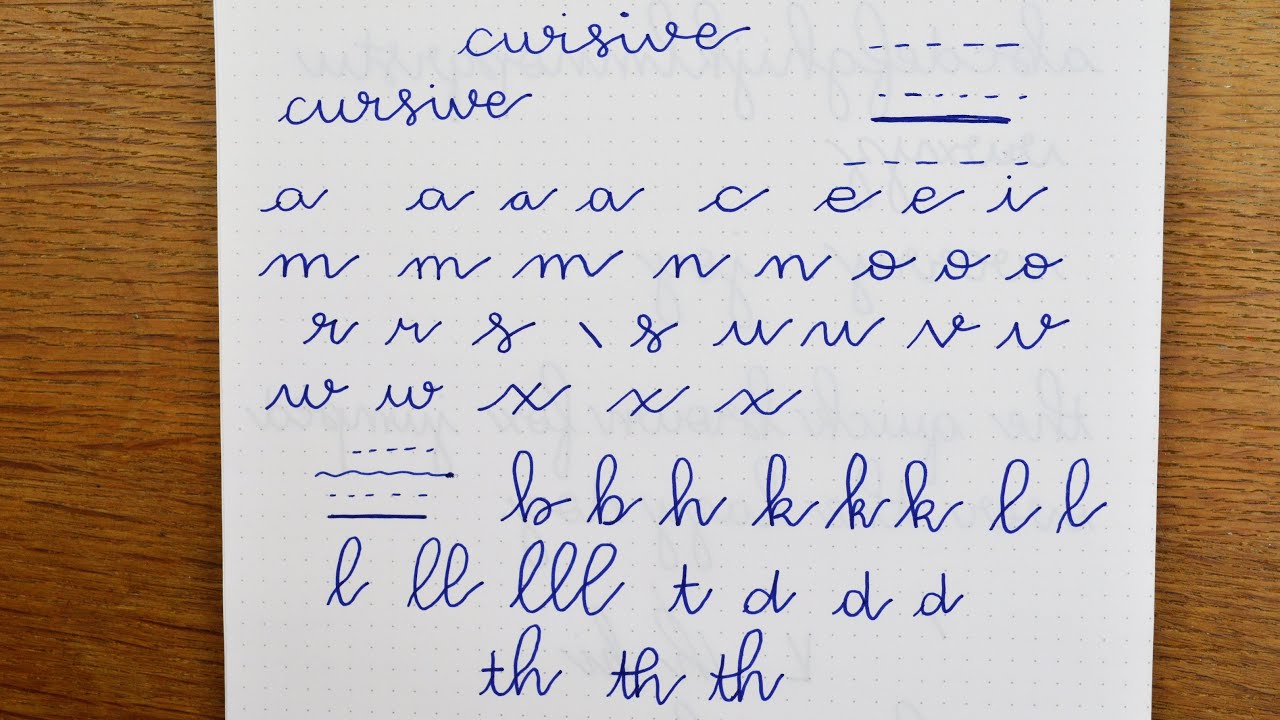 cursive
cursive
a a a a c e e i
m m m n n o o o
r r s \ s u u v v
w w x x x
b b h k k k l l
l ll lll t d d d
th th th